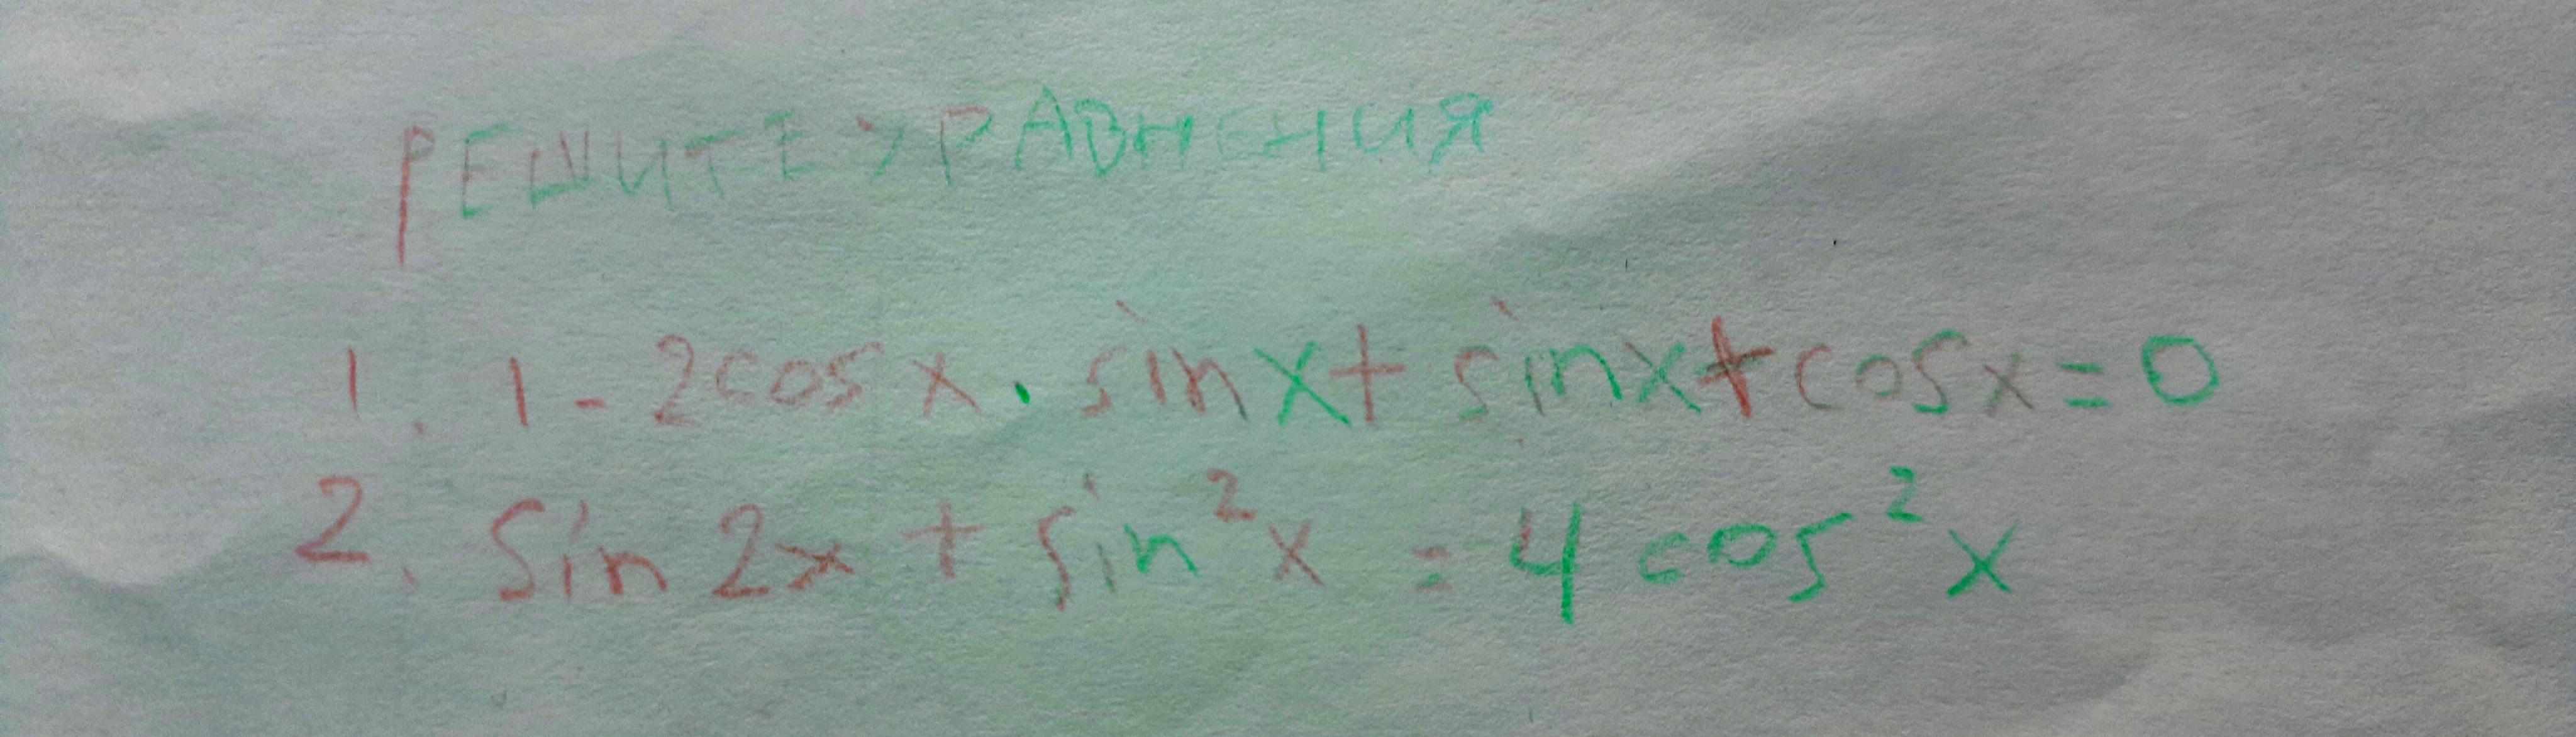 РЕШИТЕ УРАВНЕНИЯ
1. 1-2cosx·sinx+sinx+cosx=0
2. Sin2x+sin²x=4cos²x